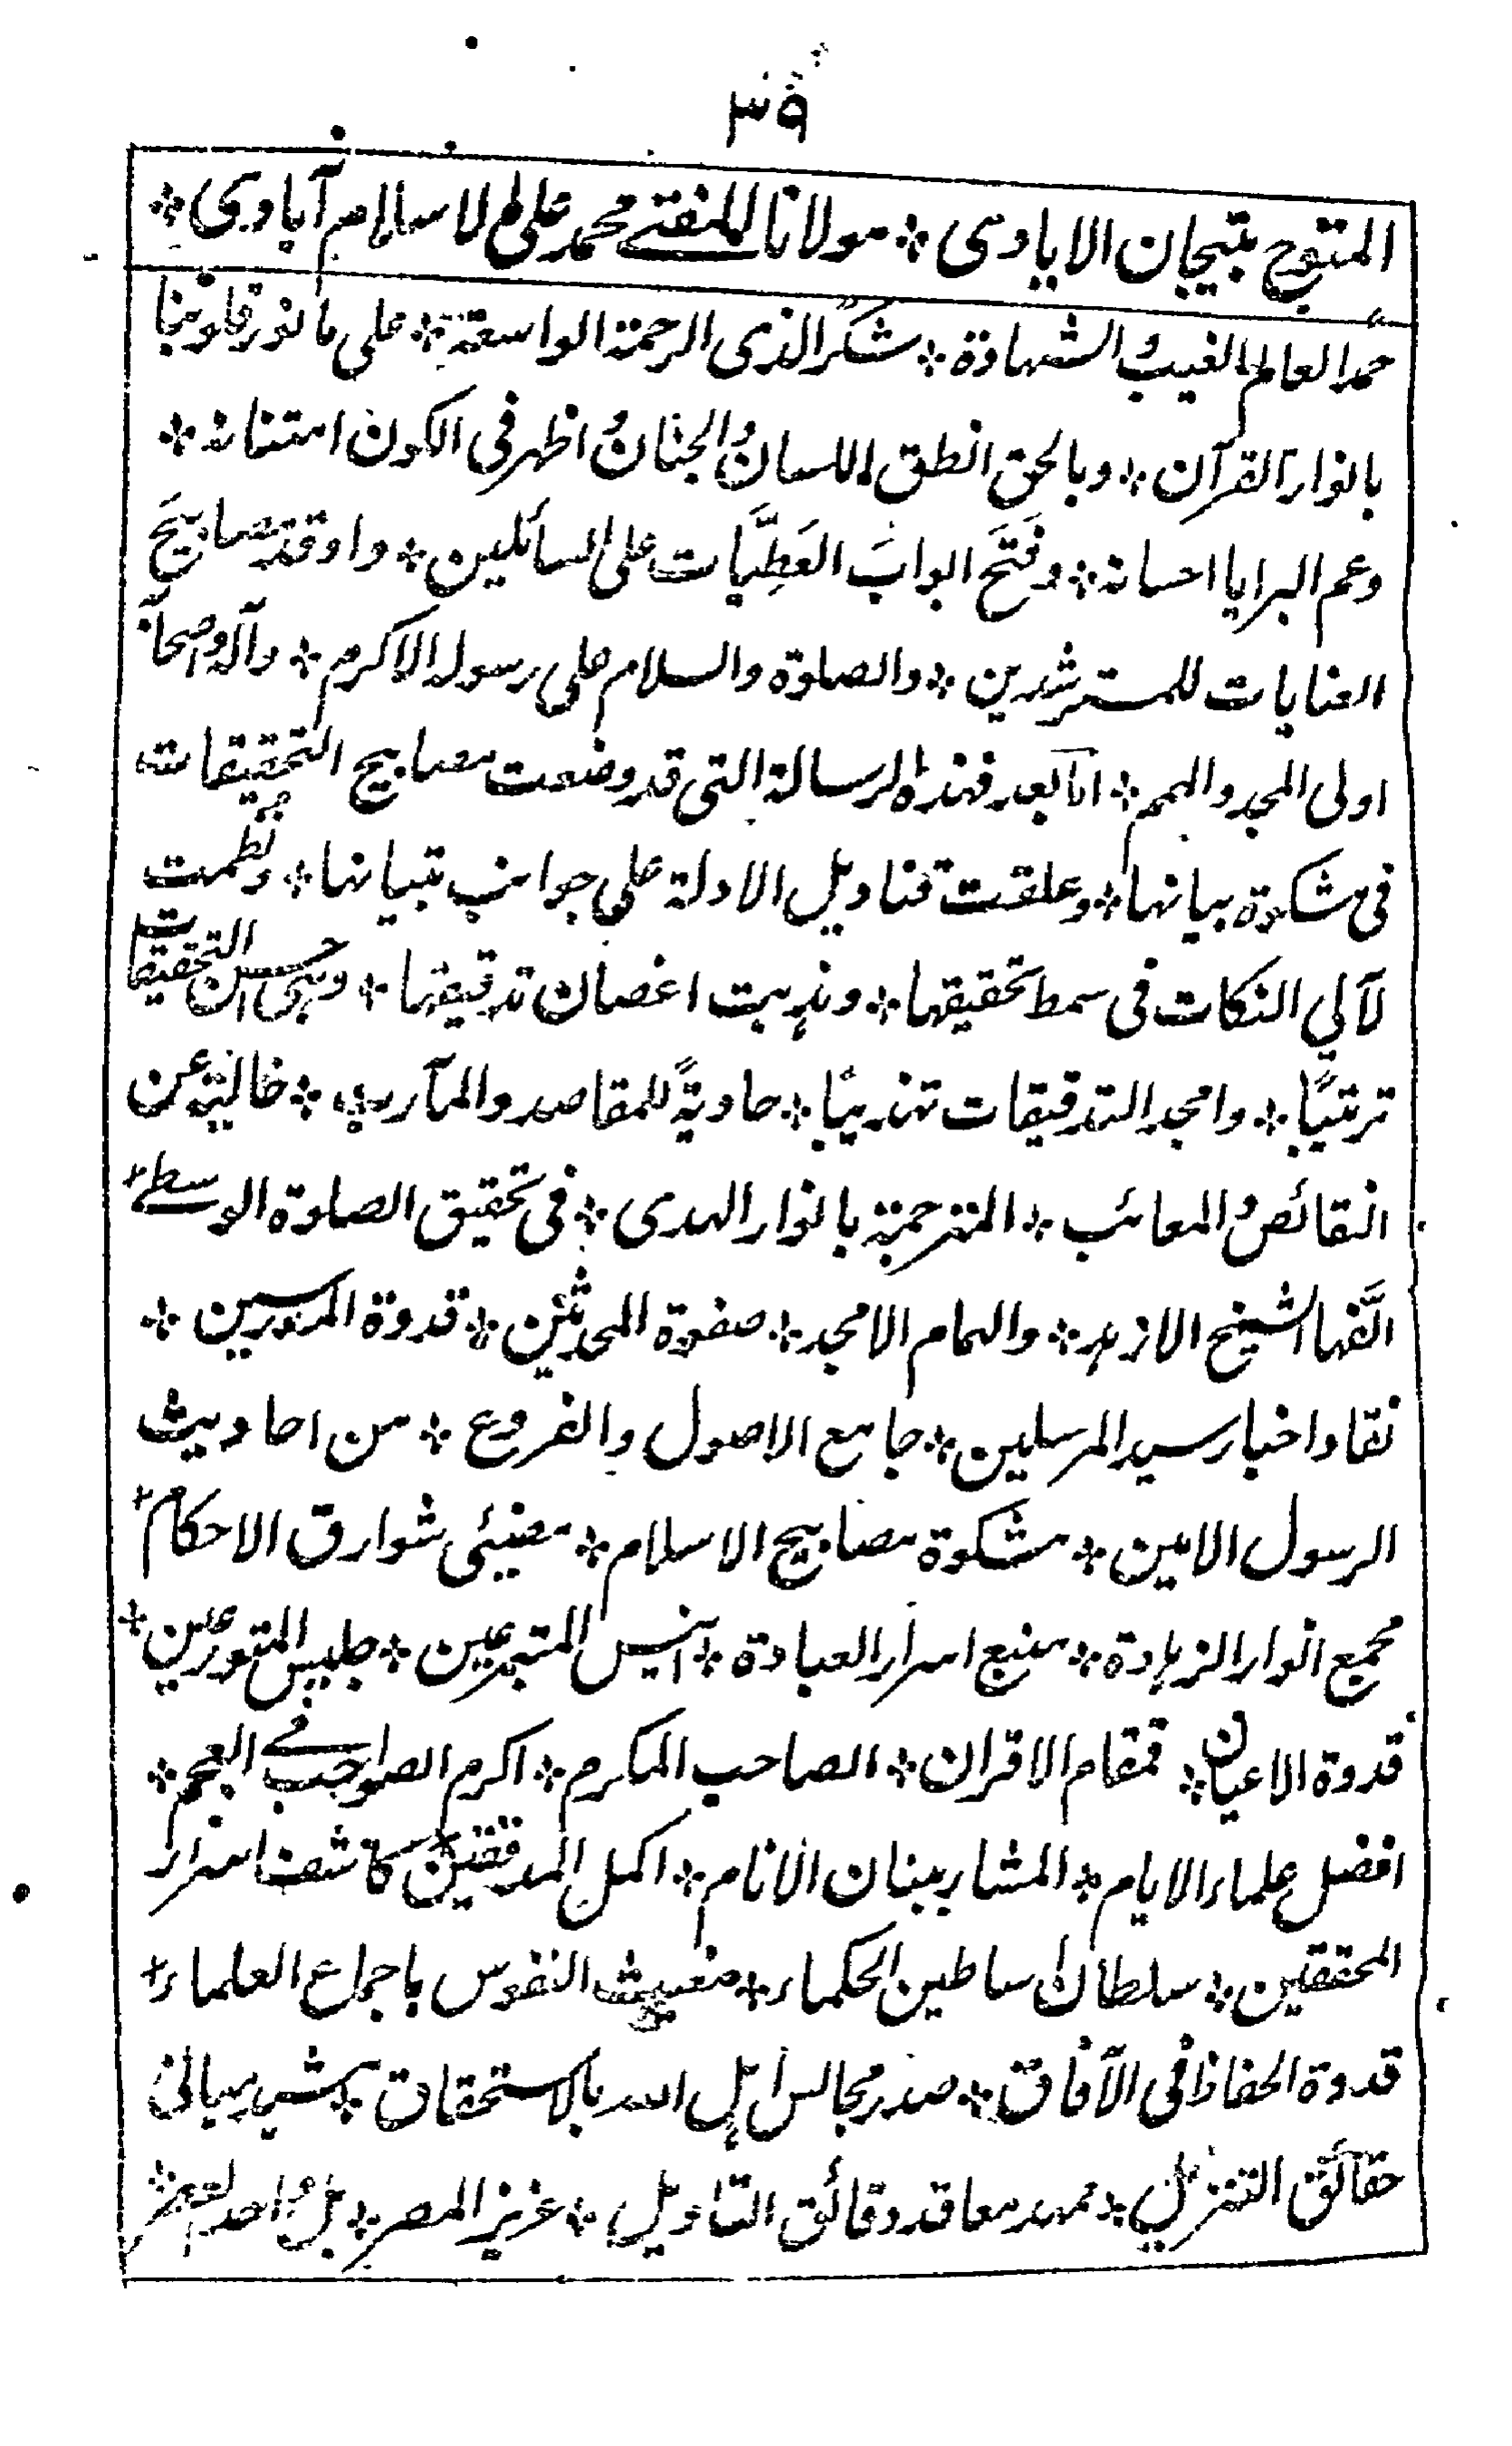 ٣٩
المتوج بتيجان الايادى ❊ مولانا المفتے محمد على الاسلام آبادى ❊
حمدا لعالم الغيب و الشهادة ❊ شكرًا لذى الرحمة الواسعة ❊ على ما نور قلوبنا
بانوار القرآن ❊ وبالحق انطق اللسانُ و الجنانُ اظهر فى الكون امتنانه ❊
وعم البرايا احسانه ❊ وفَتَحَ ابوابَ العَطِيَّات على السائلين ❊ واوقد مصابيحَ
العنايات للمسترشدين ❊ والصلوة والسلام على رسوله الاكرم ❊ وآله و اصحابه
اولى المجد والهمم ❊ امّا بعد فهذه الرسالة التى قد وضعت مصابيح التحقيقات
فى مشكوة بيانها ❊ وعلقت قناديل الادلة على جوانب تبيانها ❊ ونُظمت
لآلي النكات فى سمط تحقيقها ❊ وهذبت اغصان تدقيقها ❊ وهى احسن التحقيقات
ترتيبًا ❊ وامجد التدقيقات تهذيبًا ❊ حاويةً للمقاصد والمآرب ❊ خالية عن
النقائص و المعائب ❊ المترجمة بانوار الهدى ❊ فى تحقيق الصلوة الوسطے ❊
الَّفها الشيخ الازهد ❊ والهمام الامجد ❊ صفوة المحدثين ❊ قدوة المدرسين ❊
نقاد اخبار سيد المرسلين ❊ جامع الاصول والفروع ❊ من احاديث
الرسول الامين ❊ مشكوة مصابيح الاسلام ❊ مضيئى شوارق الاحكام ❊
مجمع انوار الزهادة ❊ منبع اسرار العبادة ❊ انيس المتبرعين ❊ جليس المتورعين ❊
قدوة الاعيان ❊ قمقام الاقران ❊ الصاحب المكرم ❊ اكرم الصواحب فى العجم ❊
افضل علماء الايام ❊ المشار ببنان الانام ❊ اكمل المدققين كاشف اسرار
المحققين ❊ سلطان اساطين الحكماء ❊ مغيث النفوس باجماع العلماء ❊
قدوة الحفاظ فى الآفاق ❊ صدر مجالس اهل الله بالاستحقاق ❊ مشيد مبانى
حقائق التنزيل ❊ ممهد معاقد دقائق التاويل ❊ عزيز المصر ❊ بل واحد العصر ❊